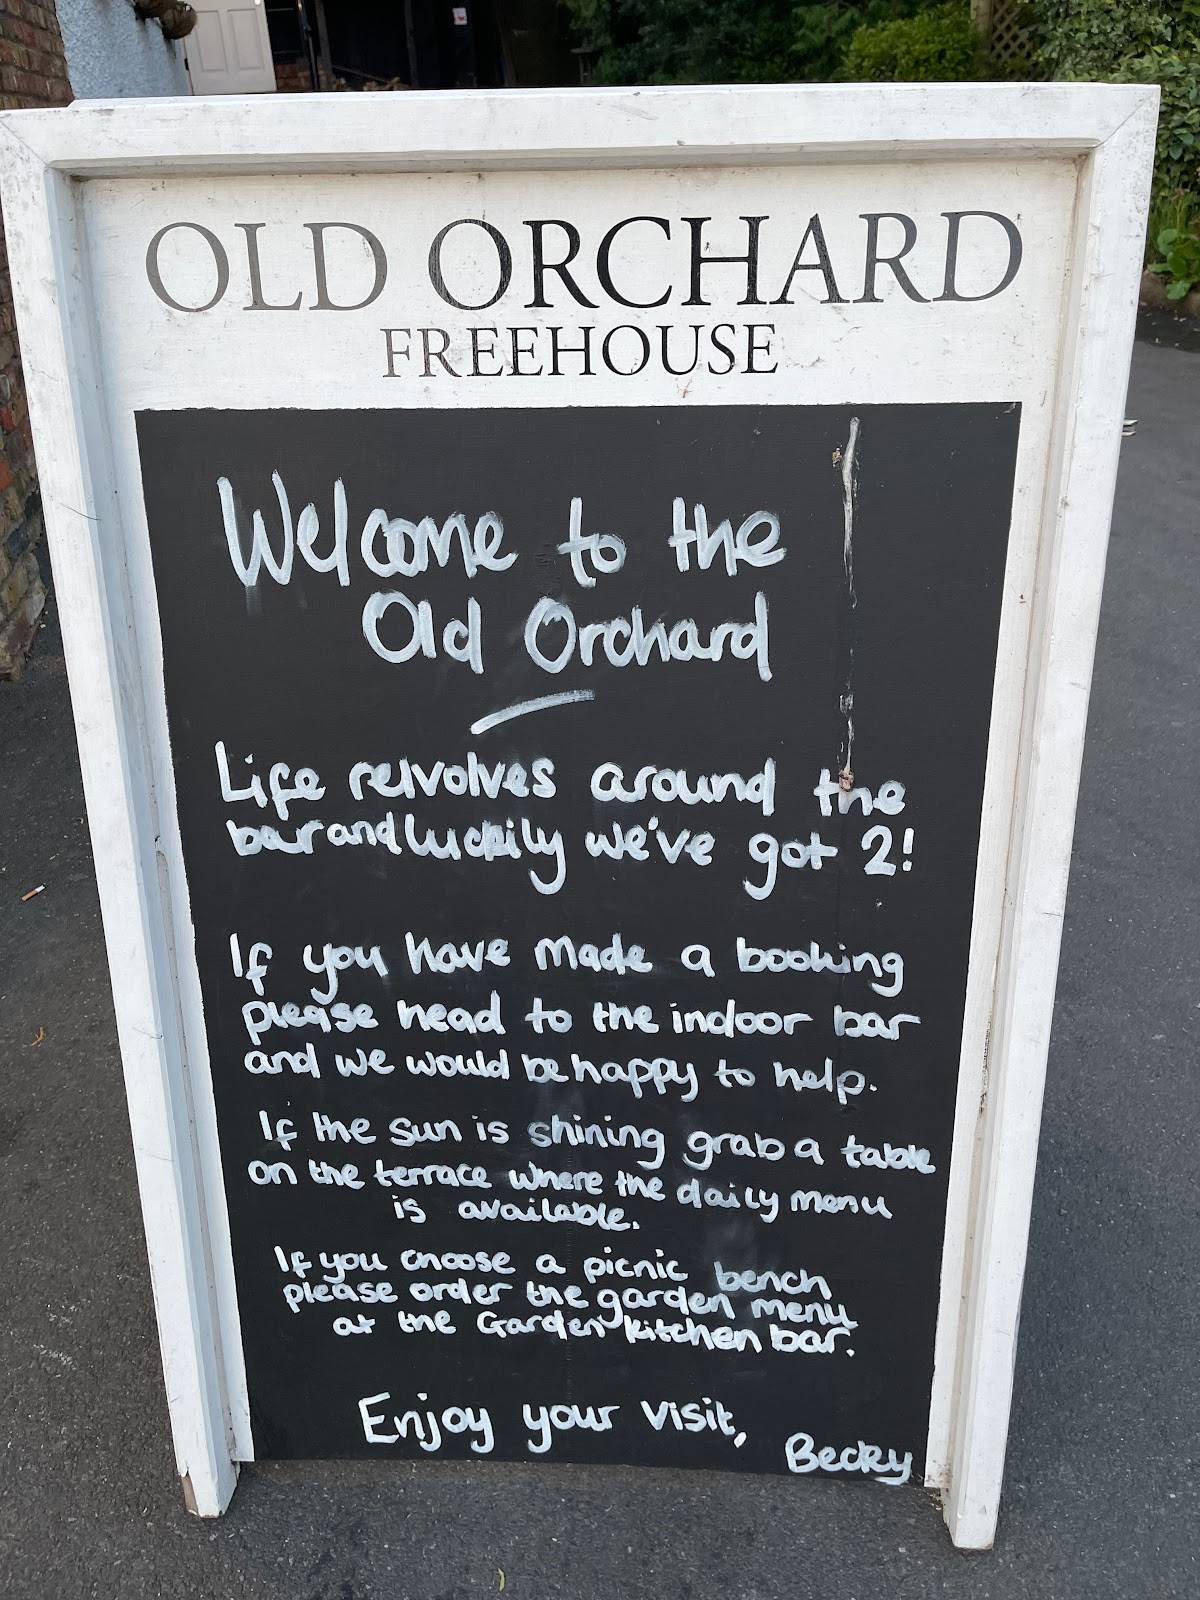 OLD ORCHARD
FREEHOUSE
Welcome to the
Old Orchard
Life relvolves around the
bar and luckily we've got 2!
If you have made a booking
please head to the indoor bar
and we would be happy to help.
If the sun is shining grab a table
on the terrace where the daily menu
is available.
If you choose a picnic bench
please order the garden menu
at the Garden kitchen bar.
Enjoy your visit,
Becky